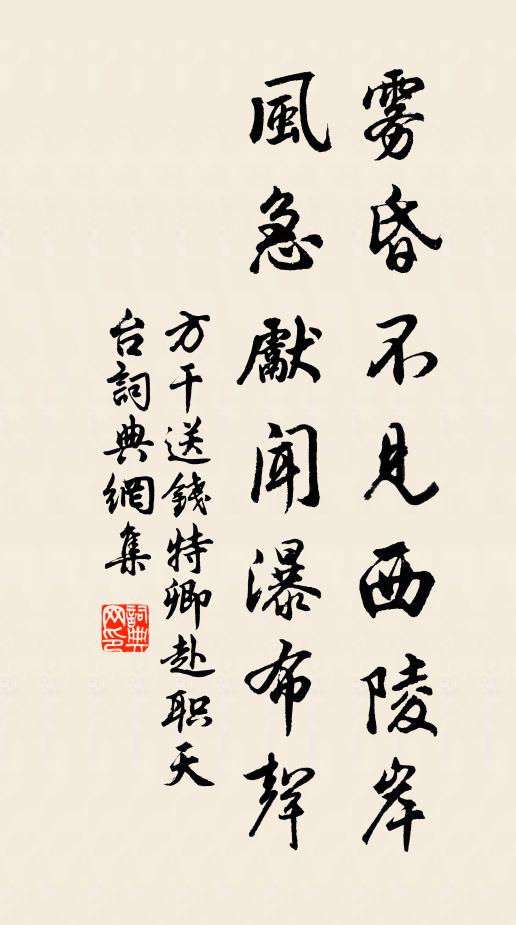 雾昏不見西陵岸
風急獻聞瀑布聲
方干送錢特卿赴职天
台詞典網集
詞典
网印